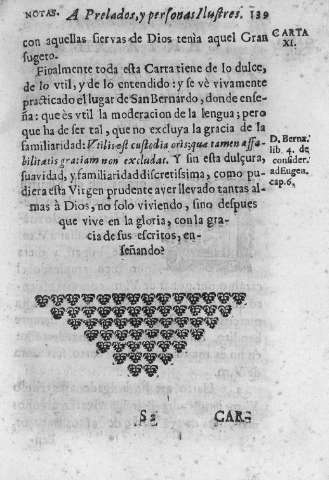 NOTAS. A Prelados, y personas Ilustres. 139
con aquellas siervas de Dios tenia aquel Gran
sugeto.
CARTA
XI.
Finalmente toda esta Carta tiene de lo dulce,
de lo vtil, y de lo entendido: y se vè vivamente
practicado el lugar de San Bernardo, donde ense-
ña: que ès vtil la moderacion de la lengua; pero
que ha de ser tal, que no excluya la gracia de la
familiaridad: Vtilis est custodia oris: quæ tamen affa-
bilitatis gratiam non excludat. Y sin esta dulçura,
suavidad, y familiaridad discretissima, como pu-
diera esta Virgen prudente aver llevado tantas al-
mas à Dios, no solo viviendo, sino despues
que vive en la gloria, con la gra-
cia de sus escritos, en-
señando?
D. Berna.
lib. 4. de
consider.
ad Eugen.
cap. 6.
S2 CAR-